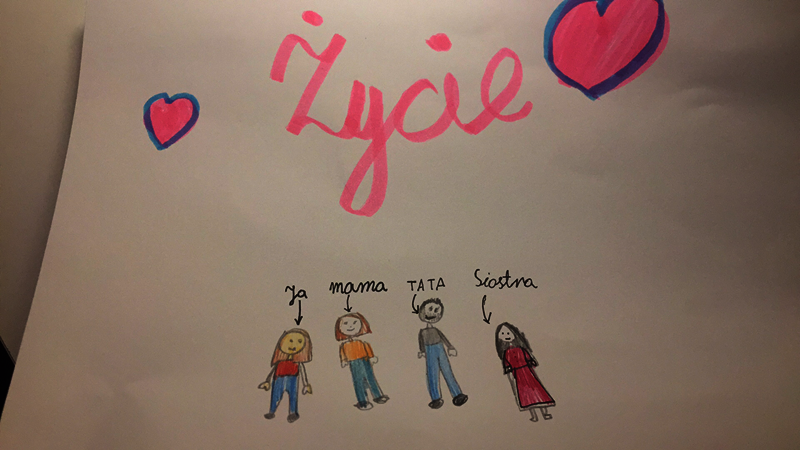 Życie
Ja mama TATA Siostra